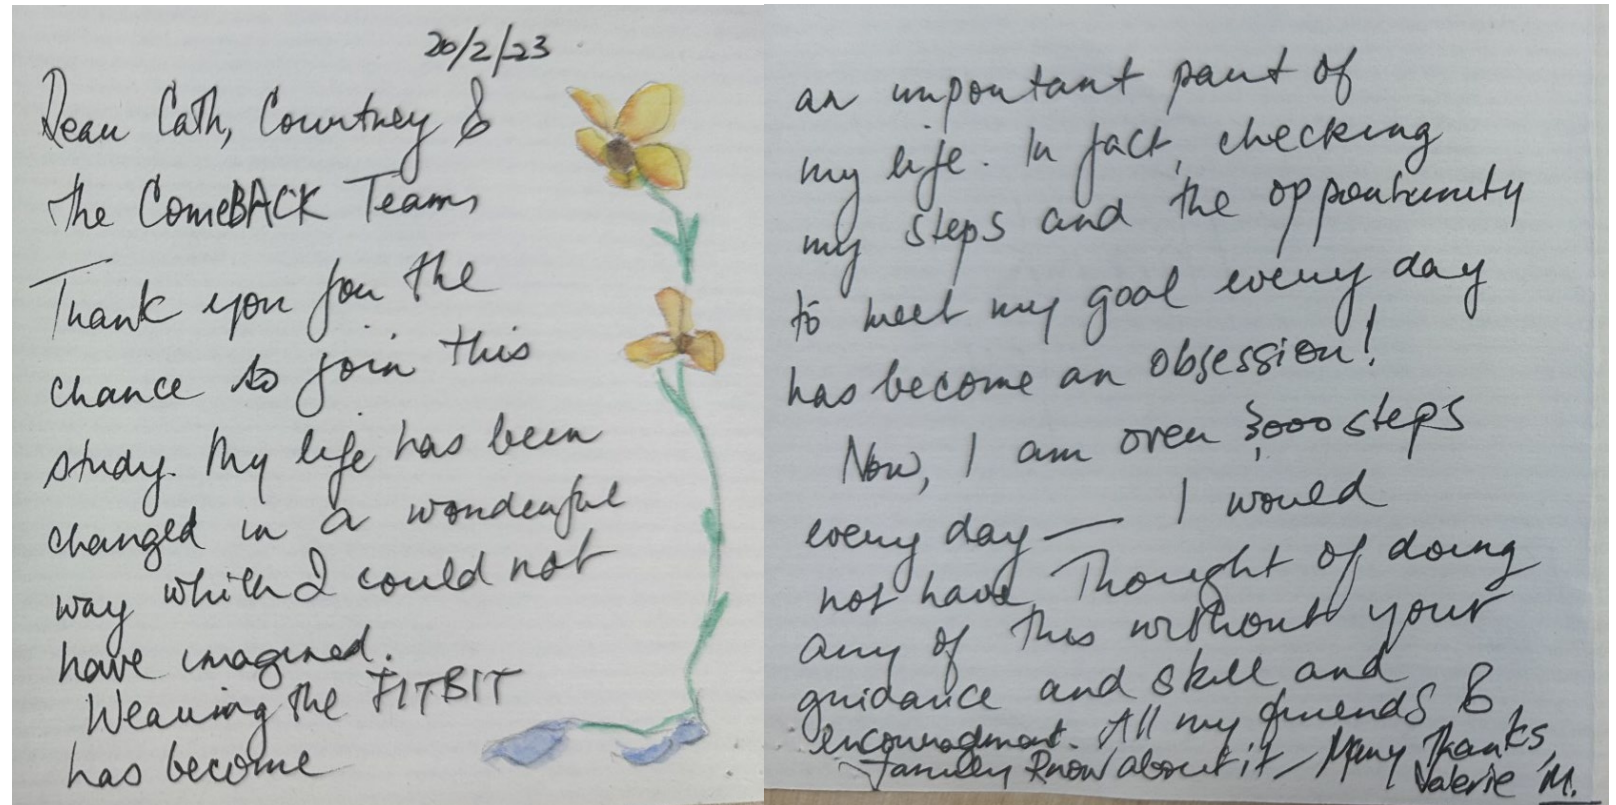 20/2/23
Dear Cath, Courtney &
the ComeBACK Teams
Thank you for the
chance to join this
study. My life has been
changed in a wonderful
way which I could not
have imagined.
Wearing the FITBIT
has become
an important part of
my life. In fact, checking
my steps and the opportunity
to meet my goal every day
has become an obsession!
Now, I am over 3000 steps
every day — I would
not have thought of doing
any of this without your
guidance and skill and
encouragment. All my friends &
family know about it – Many Thanks,
Valerie M.